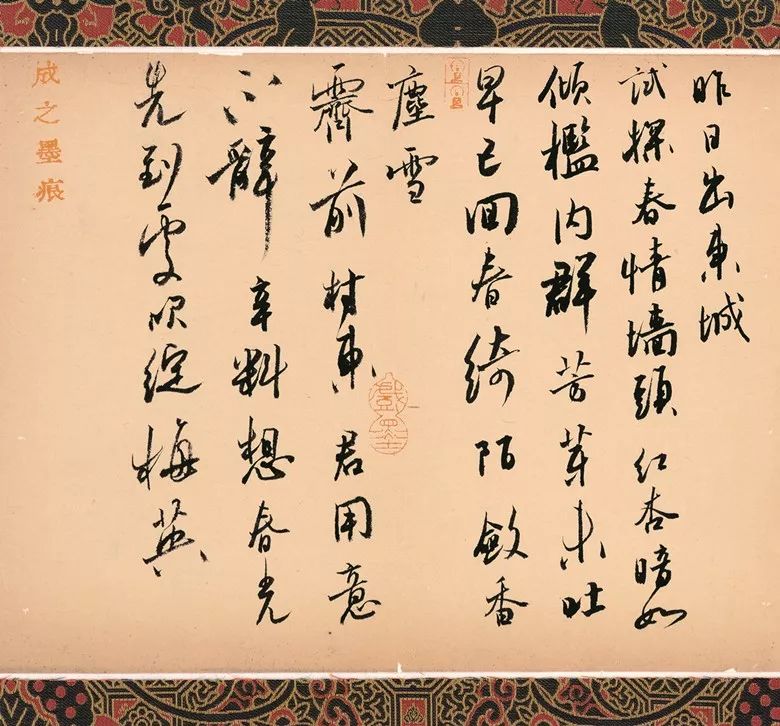 昨日出東城
試探春情墻頭紅杏暗如
傾檻内群芳芽未吐
早已回春綺陌斂香
塵雪
霽前村東君用意
不辭辛料想春光
先到處吹綻梅英
成之墨痕